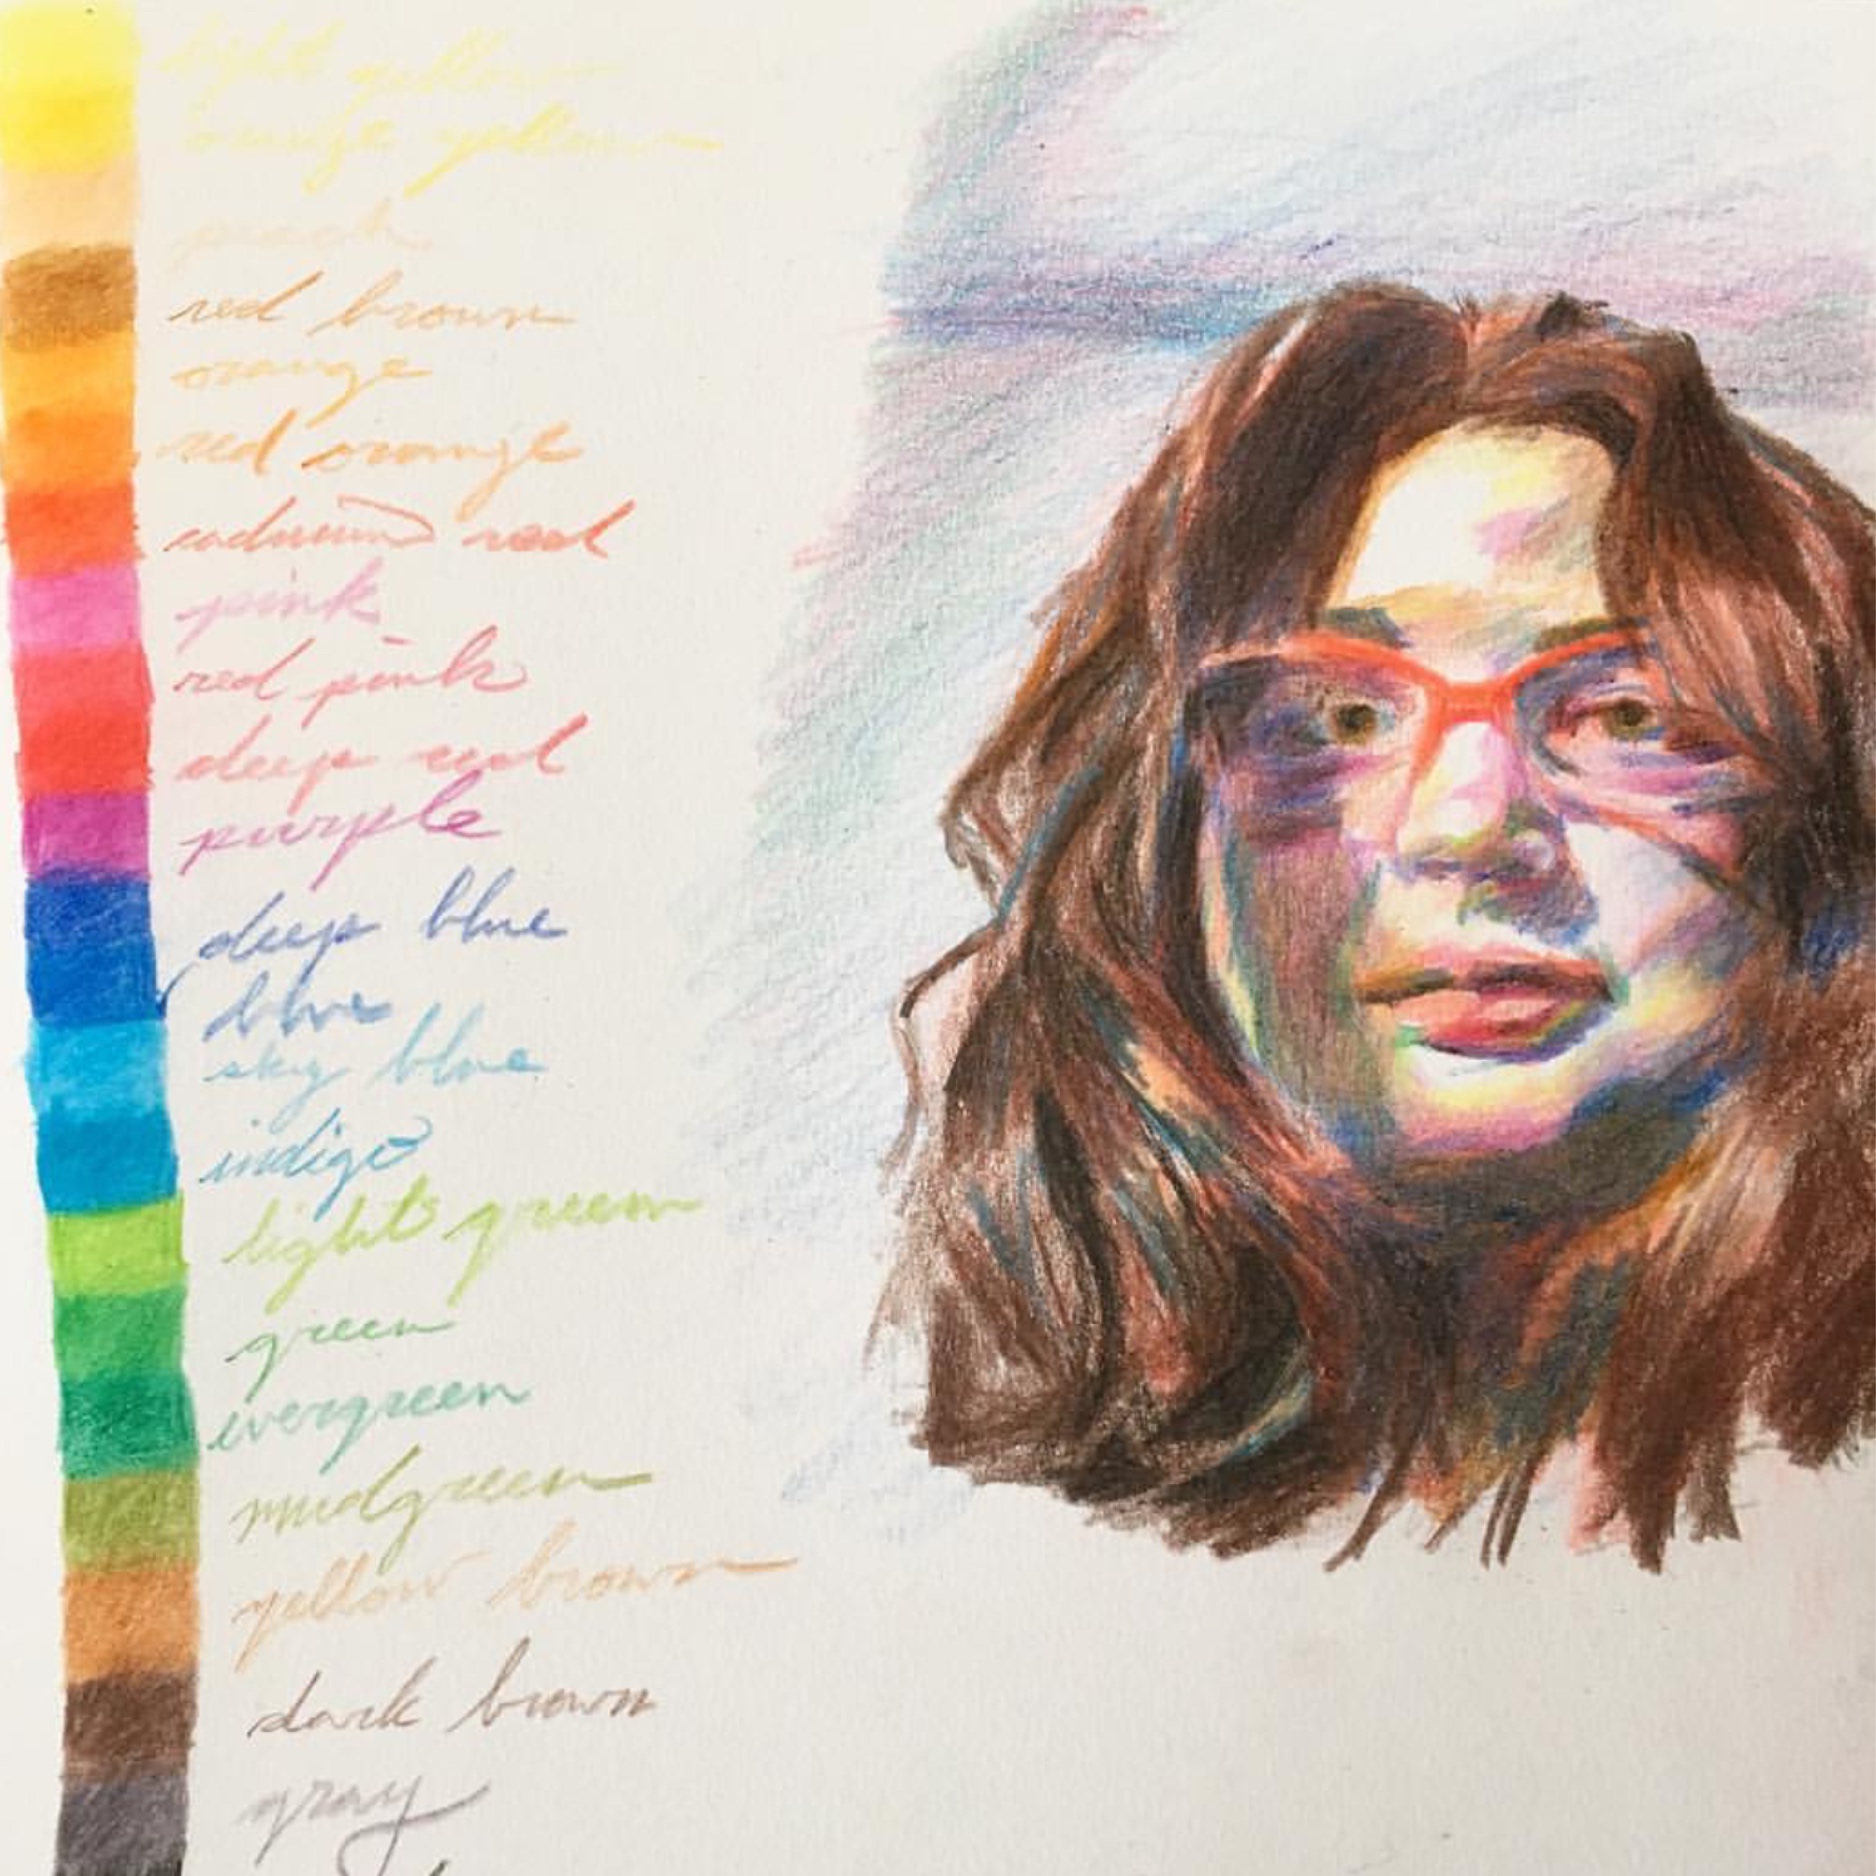 light yellow
orange yellow
peach
red brown
orange
red orange
cadmium red
pink
red pink
deep red
purple
deep blue
blue
sky blue
indigo
light green
green
evergreen
mudgreen
yellow brown
dark brown
gray